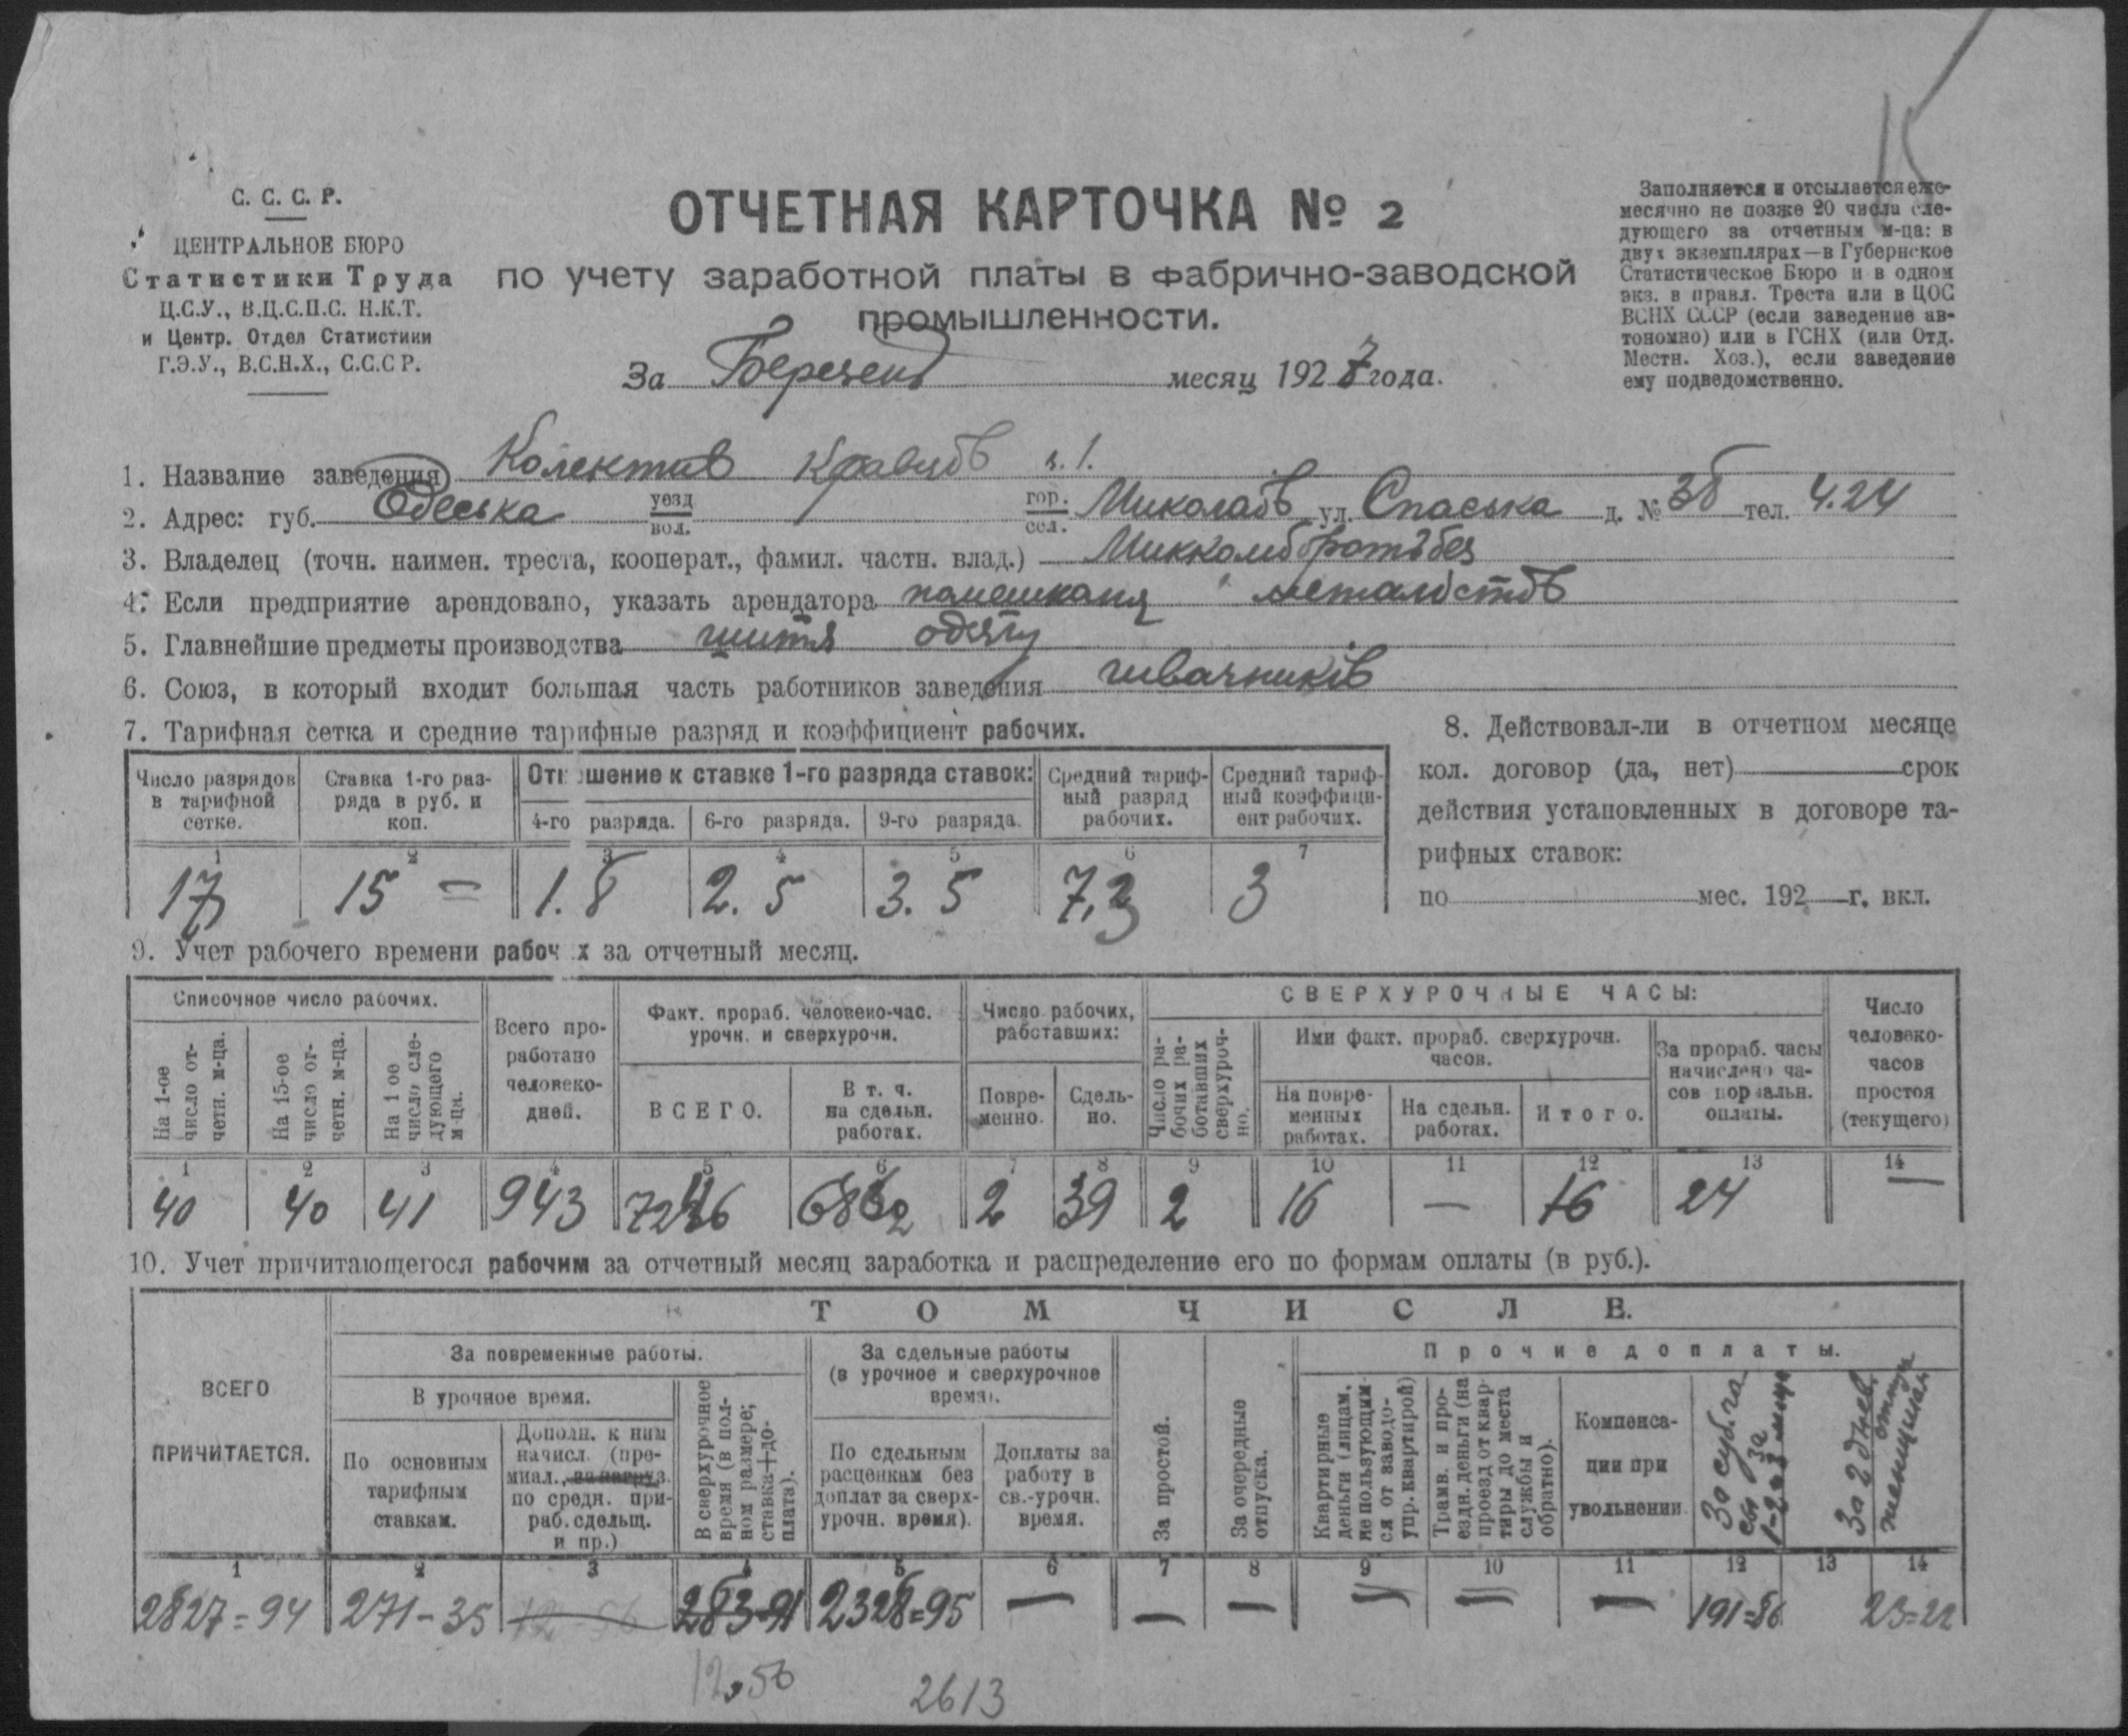 С. С. С. Р.
ЦЕНТРАЛЬНОЕ БЮРО
Статистики Труда
Ц.С.У., В.Ц.С.П.С. Н.К.Т.
и Центр. Отдел Статистики
Г.Э.У., В.С.Н.Х., С.С.С Р.
ОТЧЕТНАЯ КАРТОЧКА № 2
по учету заработной платы в фабрично-заводской
промышленности.
За Березень месяц 1927 года.
Заполняется и отсылается еже-
месячно не позже 20 числа сле-
дующего за отчетным м-ца: в
двух экземплярах—в Губернское
Статистическое Бюро и в одном
экз. в правл. Треста или в ЦОС
ВСНХ СССР (если заведение ав-
тономно) или в ГСНХ (или Отд.
Местн. Хоз.), если заведение
ему подведомственно.
1. Название заведения Колектив Кравців ч. 1.
2. Адрес: губ. Одеська уезд вол. гор. сел. Миколаїв ул. Спаська д. № 36 тел. 4.24
3. Владелец (точн. наимен. треста, кооперат., фамил. частн. влад.) Миккомборотьбез
4. Если предприятие арендовано, указать арендатора помешканя металістів
5. Главнейшие предметы производства шиття одягу
6. Союз, в который входит большая часть работников заведения швачників
7. Тарифная сетка и средние тарифные разряд и коэффициент рабочих.
Число разрядов в тарифной сетке.
Ставка 1-го раз- ряда в руб. и коп.
Отношение к ставке 1-го разряда ставок:
4-го разряда. 6-го разряда. 9-го разряда.
Средний тариф- ный разряд рабочих.
Средний тариф- ный коэффици- ент рабочих.
1 2 3 4 5 6 7
17 15 = 1. 8 2. 5 3. 5 7,3 3
8. Действовал-ли в отчетном месяце
кол. договор (да, нет) срок
действия установленных в договоре та-
рифных ставок:
по мес. 192 г. вкл.
9. Учет рабочего времени рабочх за отчетный месяц.
Списочное число рабочих.
На 1-ое число от- четн. м-ца.
На 15-ое число от- четн. м-ца.
На 1 ое число сле- дующего м-ца.
Всего про- работано человеко- дней.
Факт. прораб. человеко-час. урочн. и сверхурочн.
ВСЕГО.
В т. ч. на сдельн. работах.
Число рабочих, работавших:
Повре- менно.
Сдель- но.
СВЕРХУРОЧНЫЕ ЧАСЫ:
Число ра- бочих ра- ботавших сверхуроч- но.
Ими факт. прораб. сверхурочн. часов.
На повре- менных работах.
На сдельн. работах.
Итого.
За прораб. часы начислено ча- сов нормальн. оплаты.
Число человеко- часов простоя (текущего)
1 2 3 4 5 6 7 8 9 10 11 12 13 14
40 40 41 943 2 39 2 16 — 16 24 —
10. Учет причитающегося рабочим за отчетный месяц заработка и распределение его по формам оплаты (в руб.).
В ТОМ ЧИСЛЕ.
ВСЕГО ПРИЧИТАЕТСЯ.
За повременные работы.
В урочное время.
По основным тарифным ставкам.
Дополн. к ним начисл. (пре- миал., за нагруз. по средн. при- раб. сдельщ. и пр.)
В сверхурочное время (в пол- ном размере; ставка+до- плата).
За сдельные работы (в урочное и сверхурочное время).
По сдельным расценкам без доплат за сверх- урочн. время).
Доплаты за работу в св.-урочн. время.
За простой.
За очередные отпуска.
Прочие доплаты.
Квартирные деньги (лицам, не пользующим- ся от заводо- упр. квартирой)
Трамв. и про- ездн. деньги (на проезд от квар- тиры до места службы и обратно).
Компенса- ции при увольнении
За 2 днев.
1 2 3 4 5 6 7 8 9 10 11 12 13 14
2827=94 271-35 12-56 283-91 2328=95 — — — = = — 191=86 23=22
12,56 2613